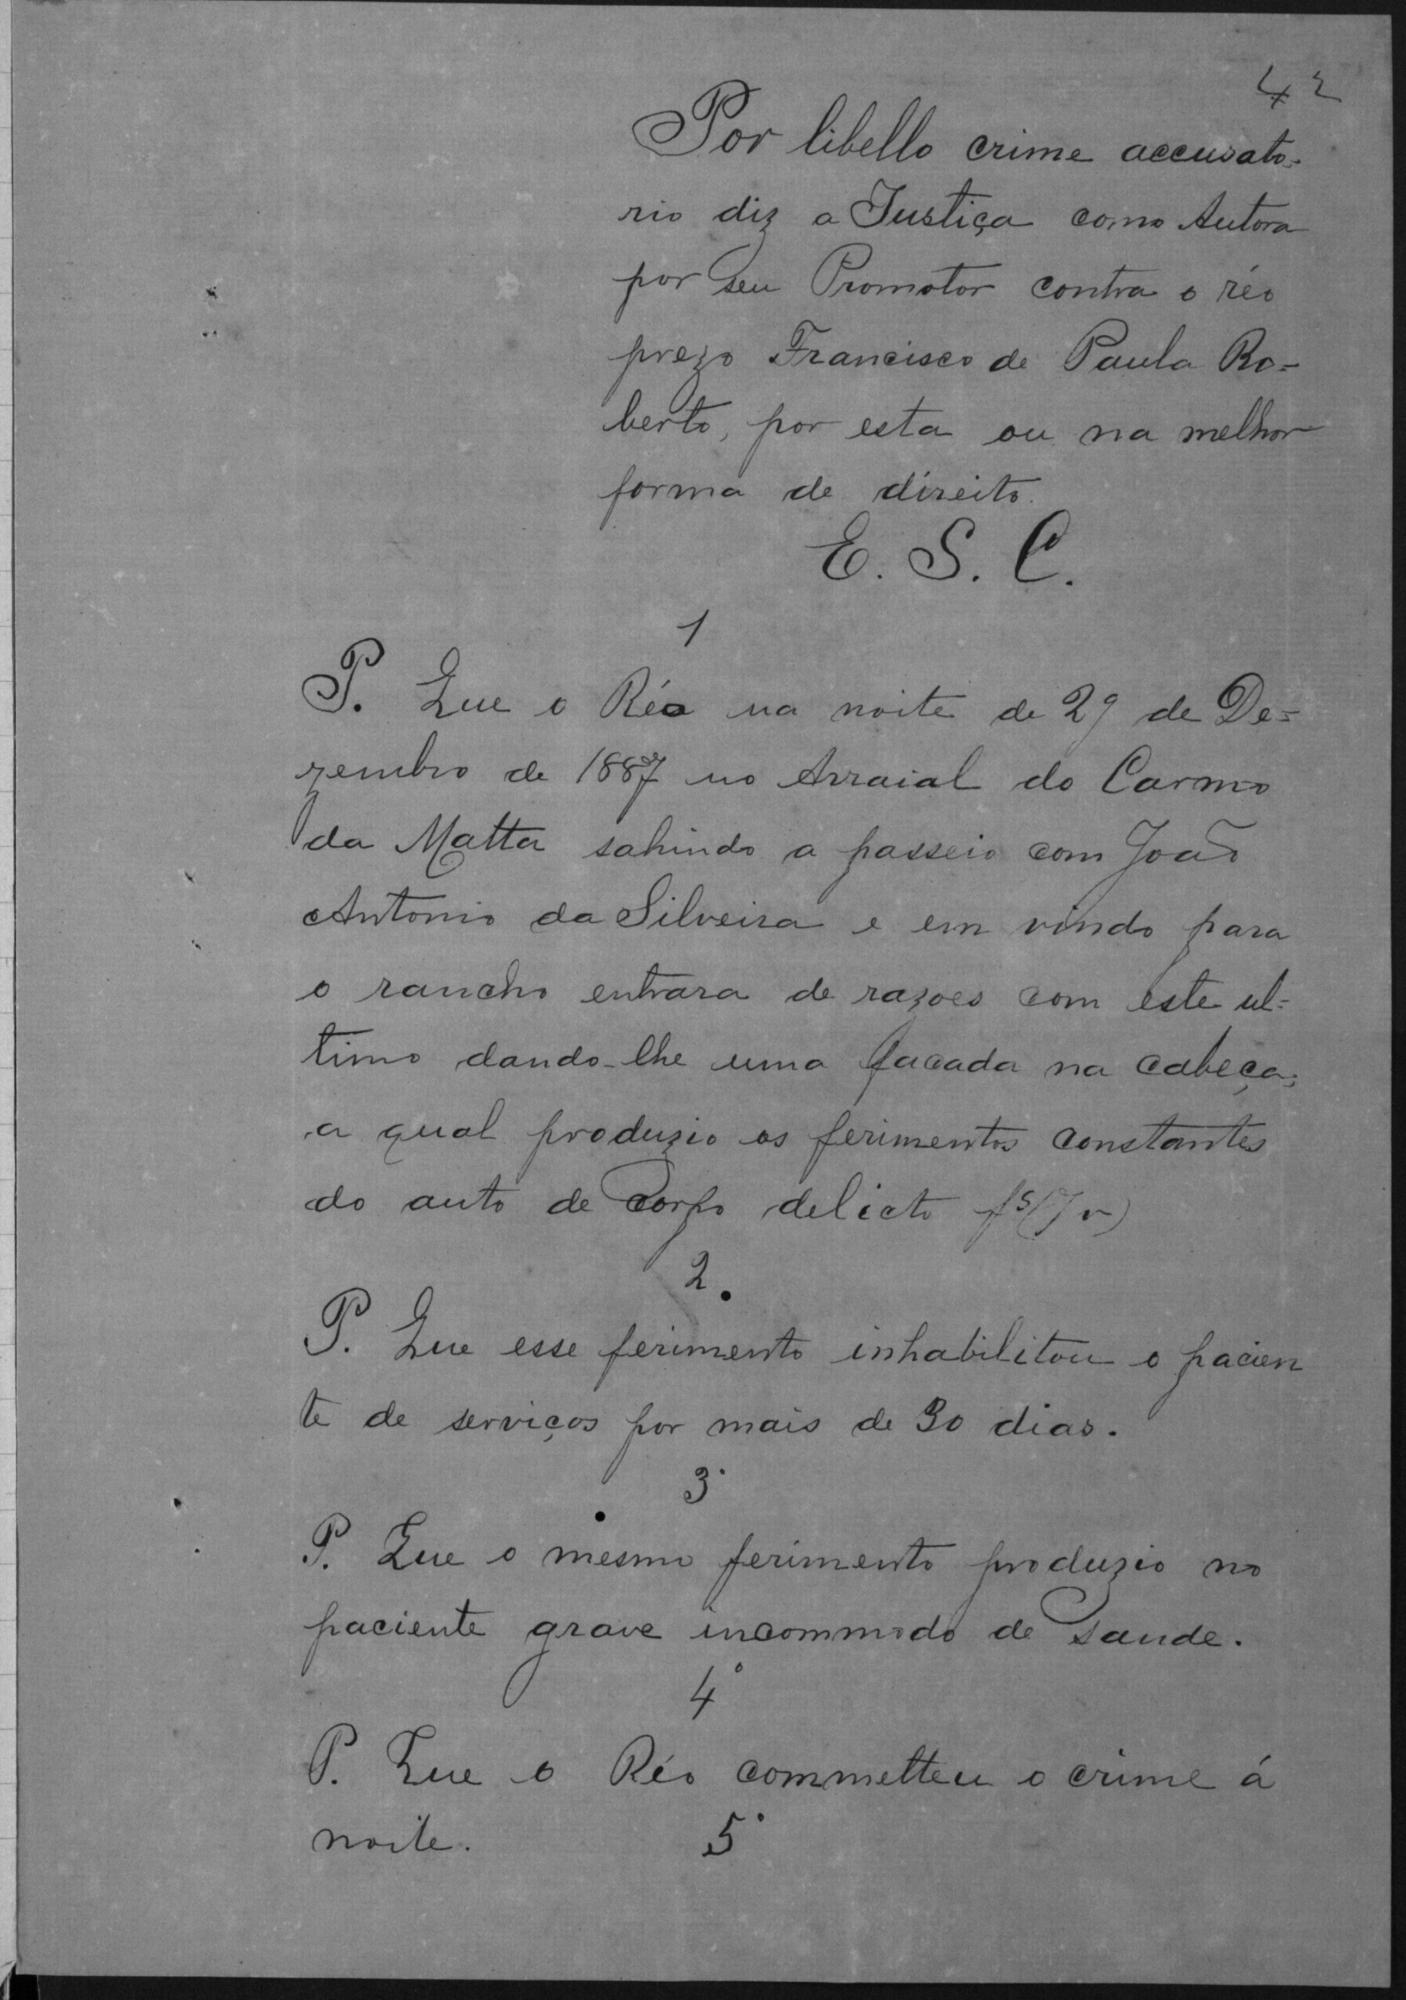 42
Por libello crime accusato-
rio diz a Justiça como Autora
por seu Promotor contra o réo
prezo Francisco de Paula Ro=
berto, por esta ou na melhor
forma de direito.
E. S. C.
1
P. Que o Réo na noite de 29 de De=
zembro de 1887 no Arraial do Carmo
da Matta sahindo a passeio com João
Antonio da Silveira e em vindo para
o rancho entrara de razoes com este ul=
timo dando-lhe uma facada na cabeça,
a qual produzio os ferimentos constantes
do auto de corpo delicto fs
2.
P. Que esse ferimento inhabilitou o pacien
te de serviços por mais de 30 dias.
3
P. Que o mesmo ferimento produzio no
paciente grave incommodo de saude.
4º
P. Que o Réo commetteu o crime á
noite.
5º